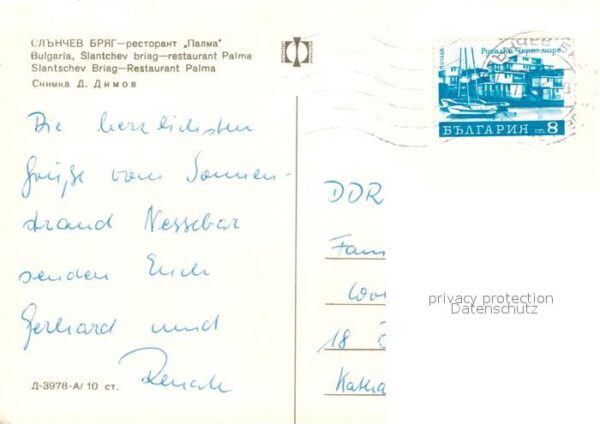 СЛЪНЧЕВ БРЯГ—ресторант „Палма"
Bulgaria, Slantchev briag—restaurant Palma
Slantschev Briag—Restaurant Palma
Снимка Д. Димов
Русалка Черно море
БЪЛГАРИЯ ст 8
Die herzlichsten
Grüße vom Sonnen-
strand Nessebar
senden Euch
Gerhard und
Renate
Д-3978-А/ 10 ст.
DDR
Fam
18
privacy protection
Datenschutz